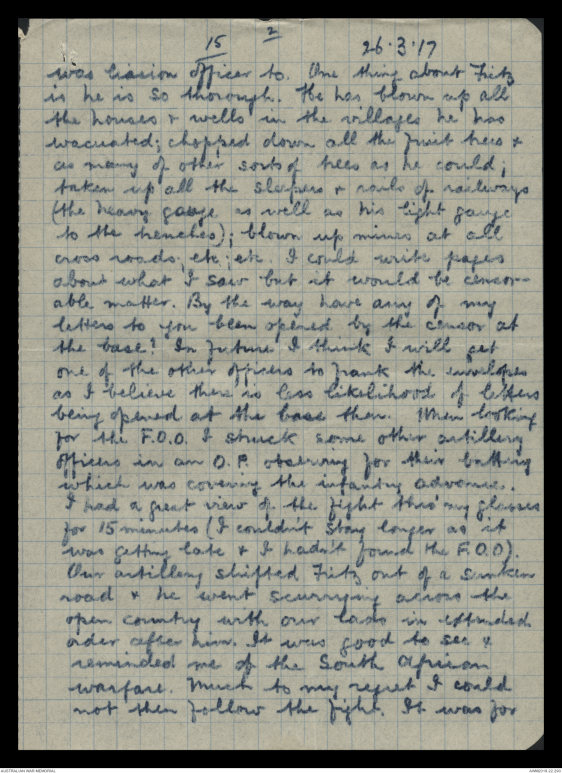 15   2   26.3.17
was liasion officer to. One thing about Fritz
is he is so thorough. He has blown up all
the houses & wells in the villages he has
evacuated; chopped down all the fruit trees &
as many of other sorts of trees as he could;
taken up all the sleepers & rails of railways
(the heavy gauge as well as his light gauge
to the trenches); blown up mines at all
cross roads, etc; etc. I could write pages
about what I saw but it would be censor-
able matter. By the way have any of my
letters to you been opened by the censor at
the base? In future I think I will get
one of the other officers to frank the envelopes
as I believe there is less likelihood of letters
being opened at the base then. When looking
for the F.O.O. I struck some other artillery
officers in an O.P. observing for their battery
which was covering the infantry advance.
I had a great view of the fight thro' my glasses
for 15 minutes (I couldn't stay longer as it
was getting late & I hadn't found the F.O.O).
Our artillery shifted Fritz out of a sunken
road & he went scurrying across the
open country with our lads in extended
order after him. It was good to see &
reminded me of the South African
warfare. Much to my regret I could
not then follow the fight. It was for
AUSTRALIAN WAR MEMORIAL